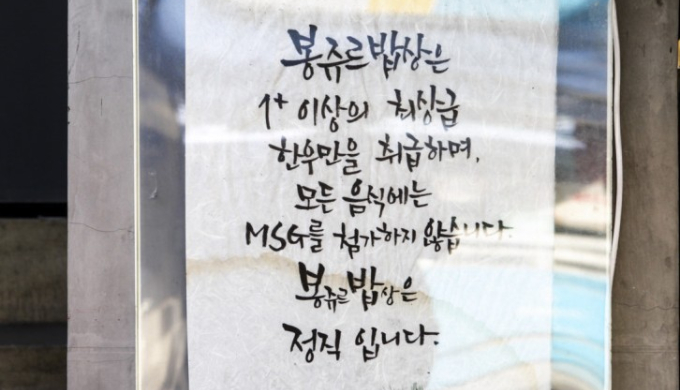 봉쥬르밥상은
1+ 이상의 최상급
한우만을 취급하며,
모든 음식에는
MSG를 첨가하지 않습니다.
봉쥬르밥상은
정직 입니다.